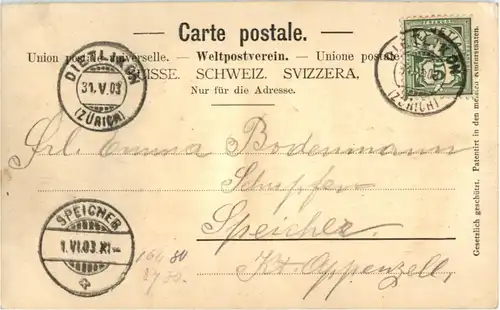 Carte postale.
Union postale universelle. – Weltpostverein. – Unione postale
SUISSE. SCHWEIZ. SVIZZERA.
Nur für die Adresse.
DIETLIKON
31.V.03
(ZÜRICH)
DIETLIKON
(ZÜRICH)
Frl. Emma Bodenmann
Speicher.
Kt. Appenzell.
SPEICHER
1.VI.03.XI–
166 80
Gesetzlich geschützt. Patentirt in den meisten Kulturstaaten.